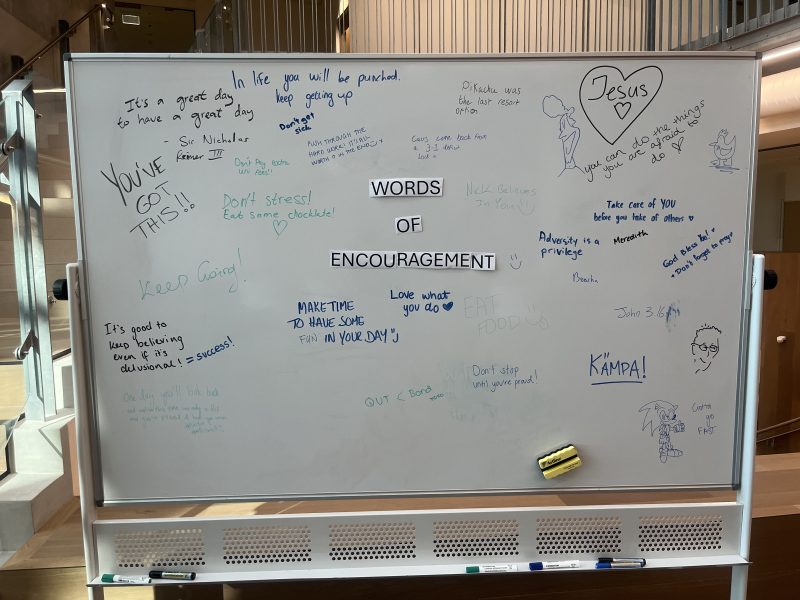 In life you will be punched.
keep getting up
It's a great day
to have a great day
- Sir Nicholas
Reimer III
Don't get
sick
Pikachu was
the last resort
option
Jesus
you can do the things
you are afraid to
do
YOU'VE
GOT
THIS!!
PUSH THROUGH THE
HARD WORK!
WORTH IT IN THE END
come back from
a 3-1
Don't Pay extra
Don't stress!
Eat some chocklate!
WORDS
OF
ENCOURAGEMENT
Nick Believes
In You!!
Take care of YOU
before you take of others
Adversity is a
privilege
Meredith
God Bless You!
Don't forget to pray
Keep Going!
MAKE TIME
TO HAVE SOME
FUN IN YOUR DAY
Love what
you do
EAT
FOOD
John 3:16
It's good to
keep believing
even if it's
delusional! = success!
KÄMPA!
Don't stop
until you're proud!
One day you'll look back
QUT < Bond
Gotta
go
FAST